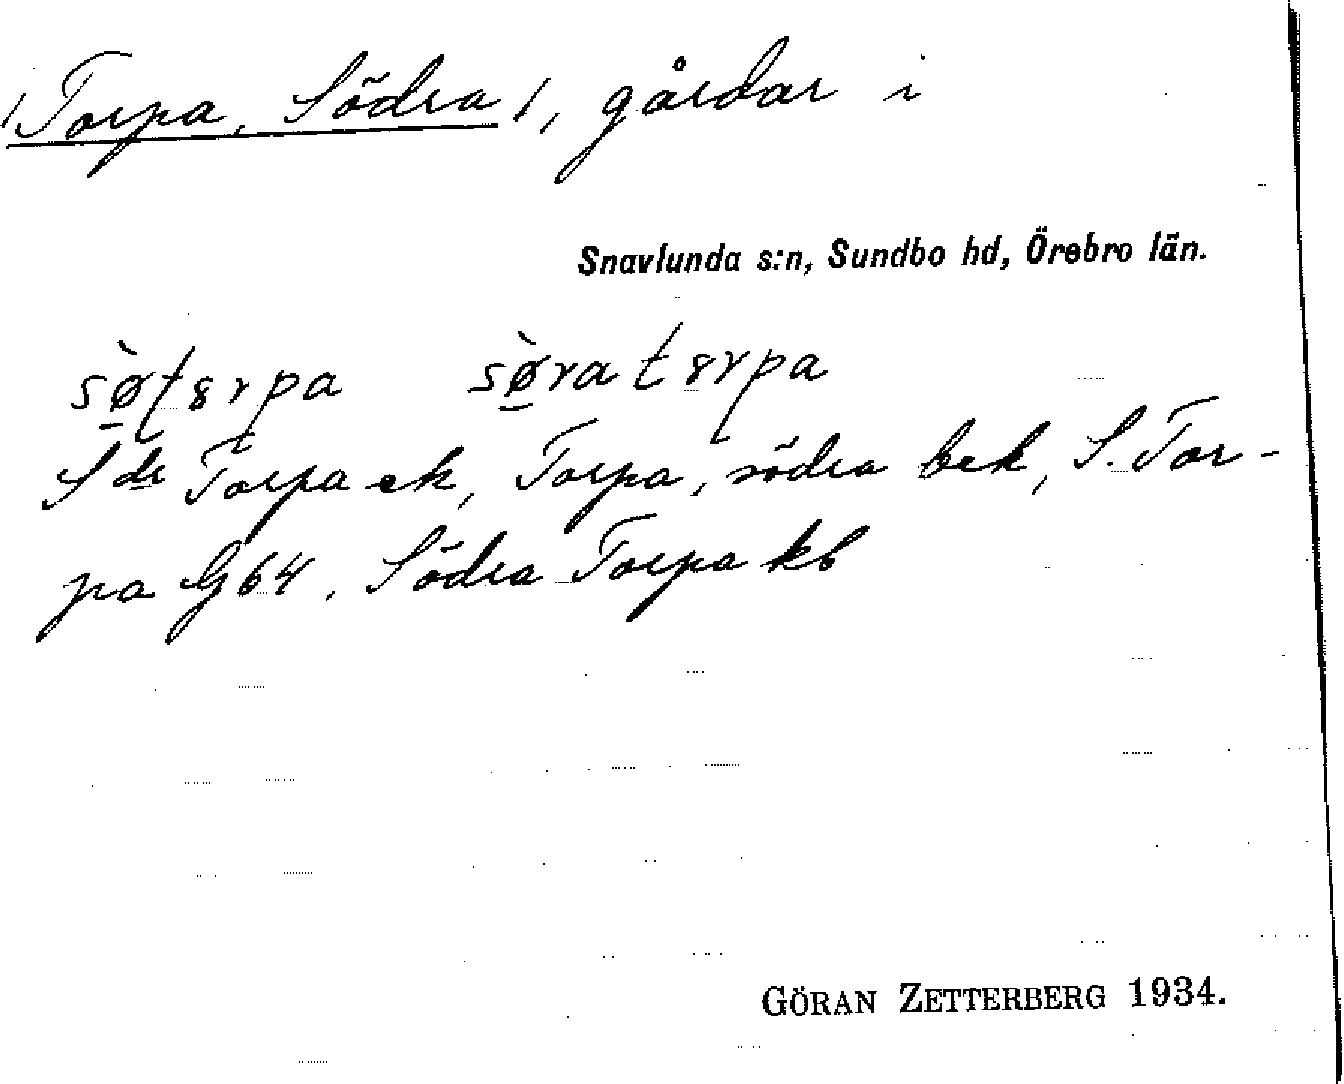 /Torpa, Södra/, gårdar i
Snavlunda s:n, Sundbo hd, Örebro län.
sø̀tȣrpa sø̀ra tȣrpa
Sdr Torpa ek, Torpa, södra bek, S. Tor-
pa G64. Södra Torpa kb
GÖRAN ZETTERBERG 1934.